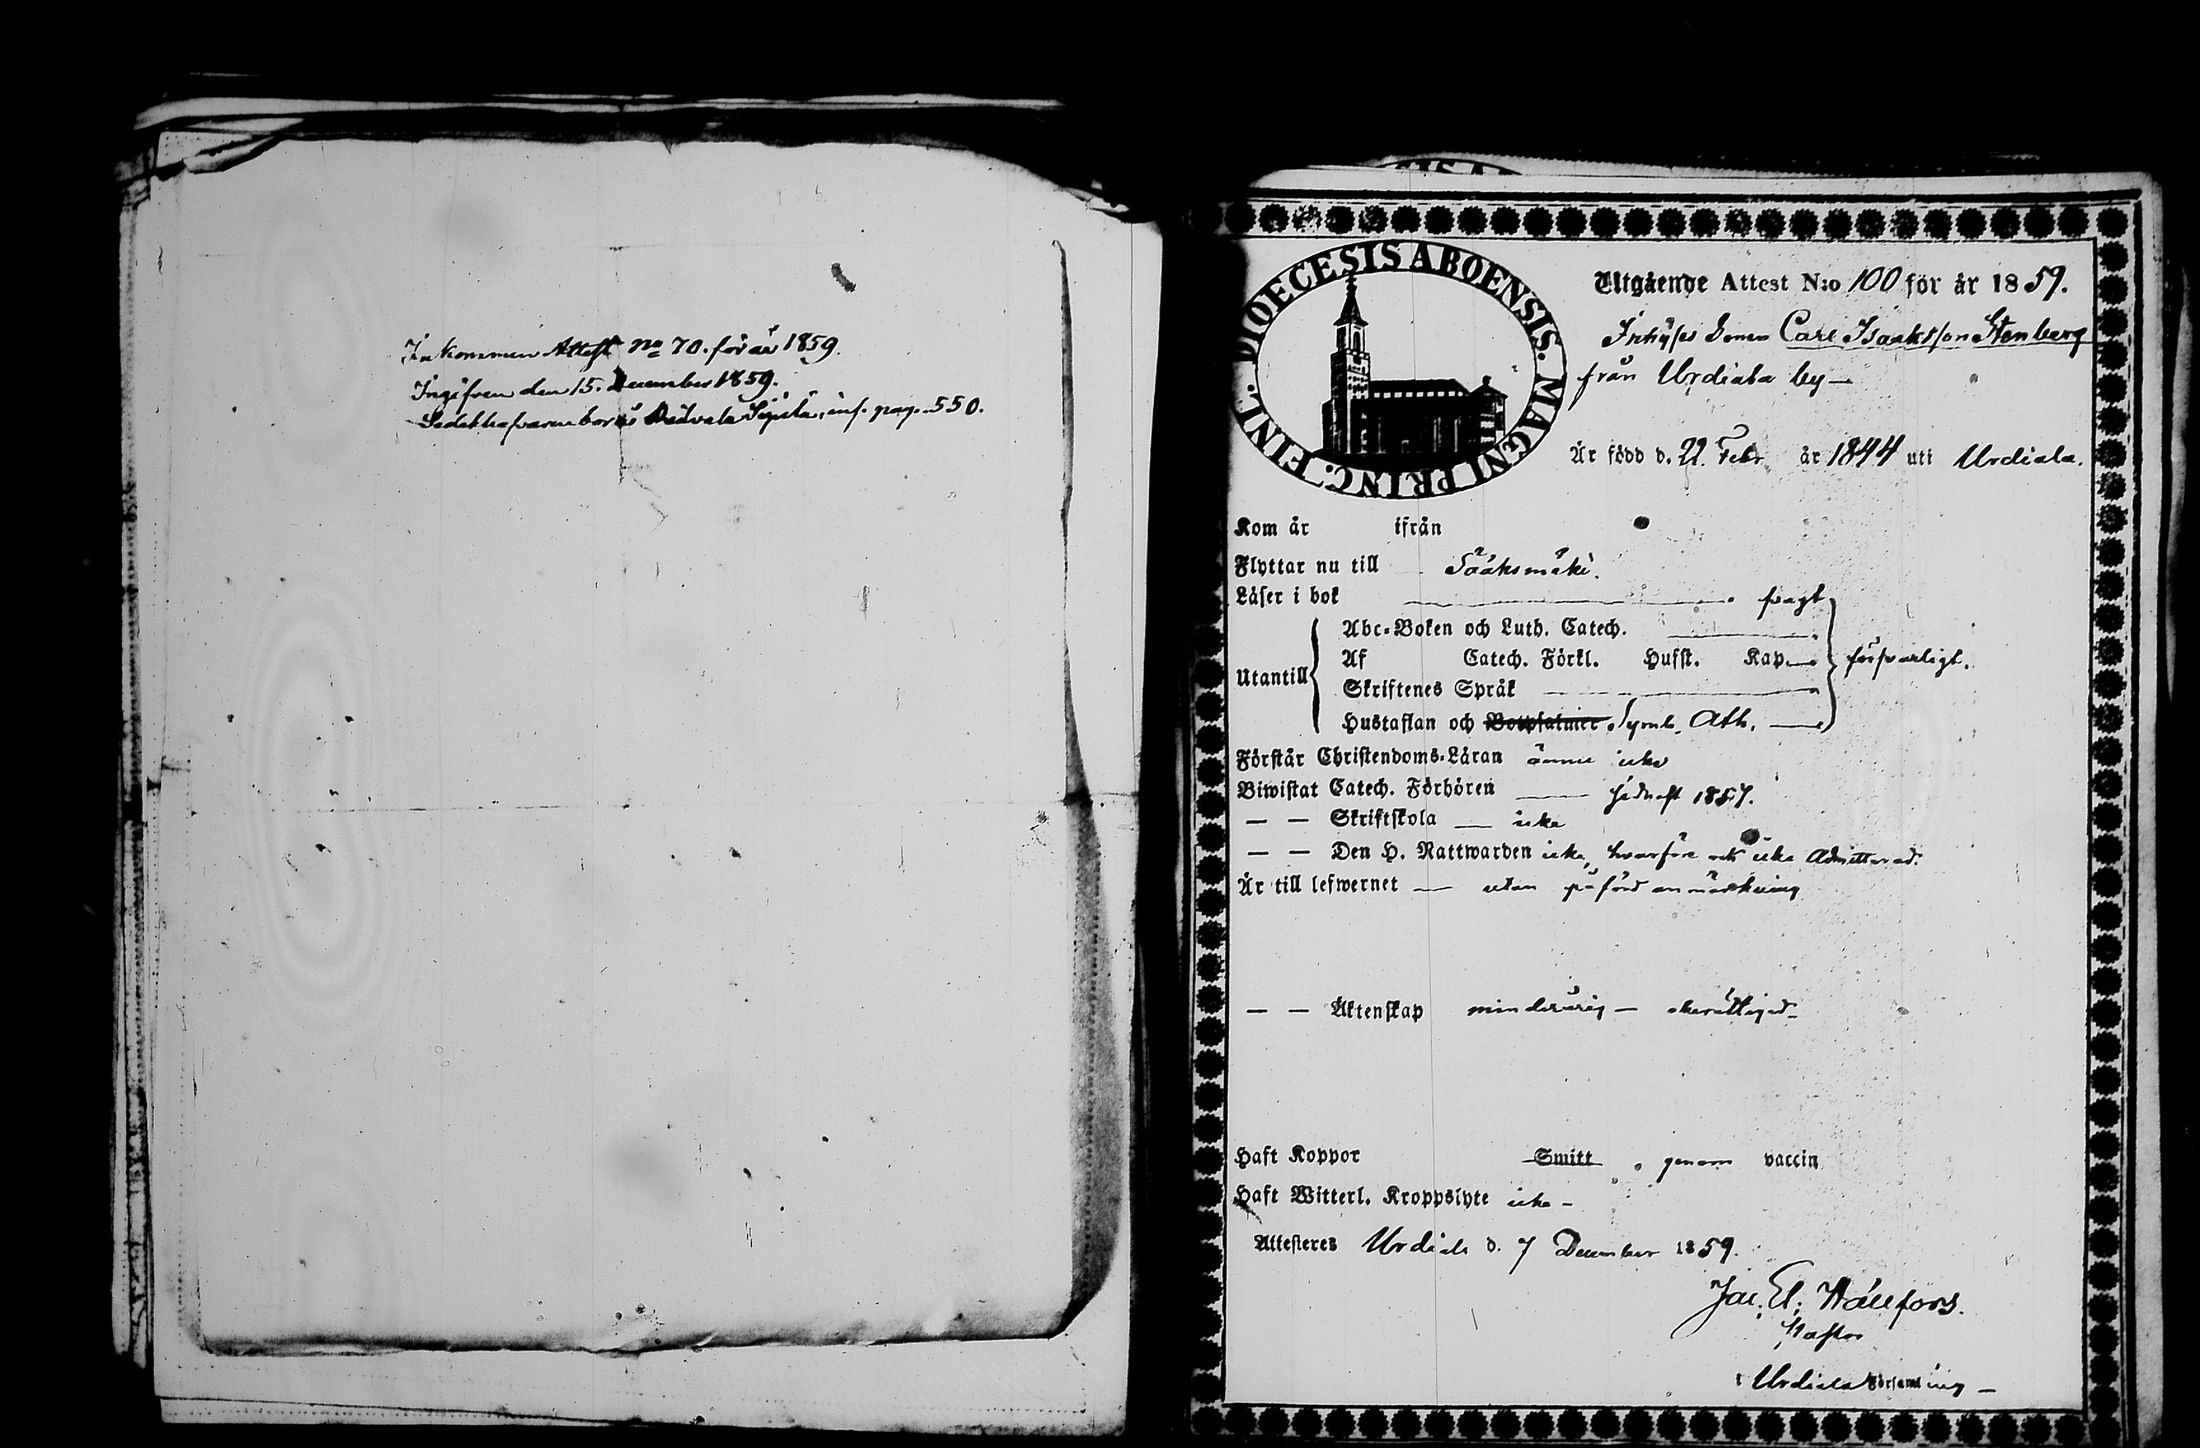 Inkommen Attest No 70. för år 1859.
Ingifven den 15. December 1859.
inf. pag. 550.
DIOECESIS ABOENSIS. MAGNI PRINC. FINL.
Utgående Attest N:o 100 för år 1859.
Carl Isaaksson Stenberg
från Urdiala by —
Är född d. 22. Febr år 1844 uti Urdiala.
Kom år ifrån
Flyttar nu till Sääksmäki.
Läser i bok — svagt
Abc-Boken och Luth. Catech. —
Utantill
Af Catech. Förkl. Hufst. Kap. — försvarligt.
Skriftenes Språk —
Hustaflan och Botpsalmer Symb. Ath. —
Förstår Christendoms-Läran ännu icke
Biwistat Catech. Förhören — sednast 1857.
— — Skriftskola — icke
— — Den H. Nattwarden icke, hvarföre ock icke Admitterad.
Är till lefwernet — utan påförd anmärkning
— — Äktenskap minderårig — oberättigad —
Haft Koppor Smitt genom vaccin
Haft Witterl. Kroppslyte icke —
Attesteres Urdiala d. 7 December 1859.
Jac. El. Wallfors.
Pastor
i Urdiala Församling —